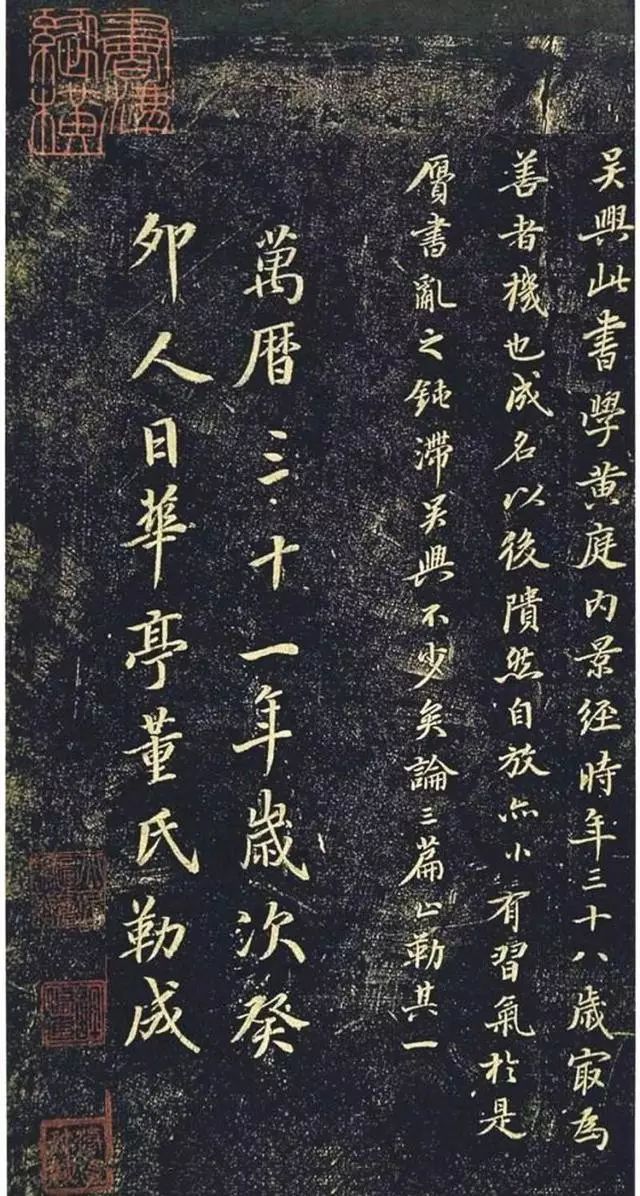 吴興此書學黄庭内景經時年三十八歲冣為
善者機也成名以後隤然自放亦小有習氣於是
贋書亂之鈍滯吴興不少矣論三篇止勒其一
萬曆三十一年歲次癸
卯人日華亭董氏勒成